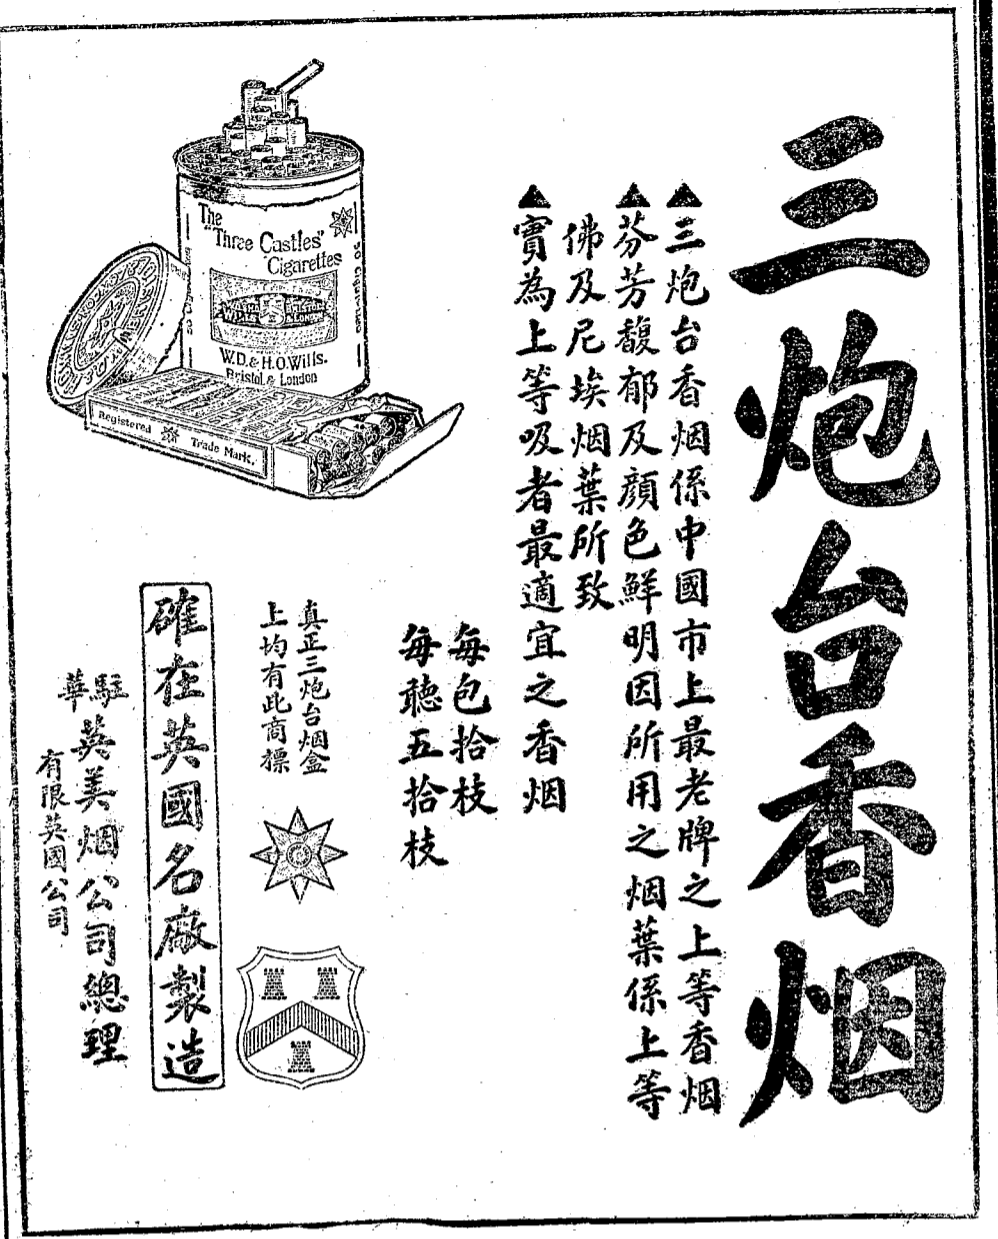 三炮台香烟
▲三炮台香烟係中國市上最老牌之上等香烟
▲芬芳馥郁及顏色鮮明因所用之烟葉係上等
佛及尼埃烟葉所致
▲實為上等吸者最適宜之香烟
每包拾枝
每聽五拾枝
The
"Three Castles"
Cigarettes
50 CIGARETTES
WILLS'S
BRISTOL
& LONDON
W.D. & H.O. Wills.
Bristol & London
Registered Trade Mark.
真正三炮台烟盒
上均有此商標
確在英國名廠製造
駐華英美烟公司總理
有限英國公司